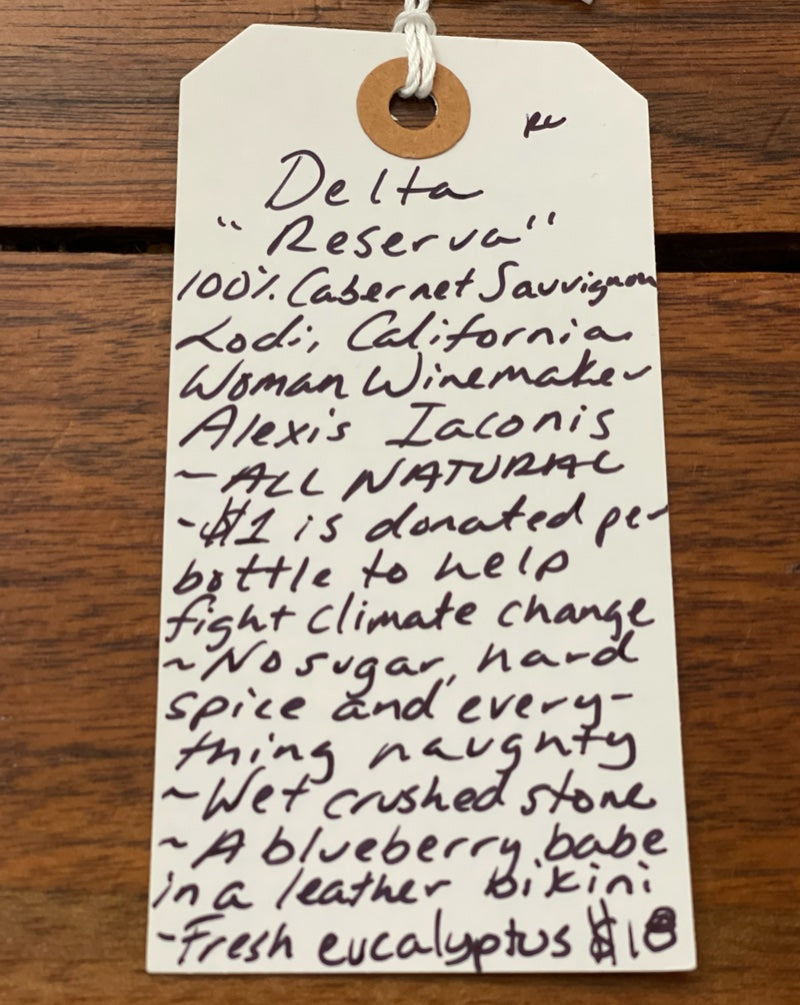 RC
Delta
"Reserva"
100% Cabernet Sauvignon
Lodi, California
Woman Winemaker
Alexis Iaconis
~ALL NATURAL
-$1 is donated per
bottle to help
fight climate change
~No sugar, hard
spice and every-
thing naughty
~Wet crushed stone
~A blueberry babe
in a leather bikini
-Fresh eucalyptus $18